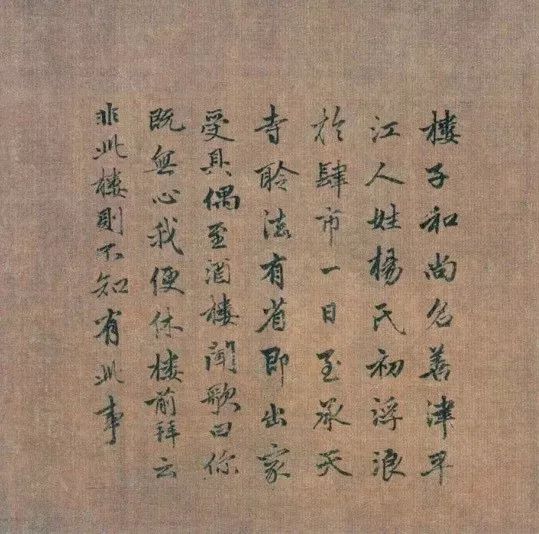 楼子和尚名善津平
江人姓杨氏初浮浪
於肆市一日至承天
寺聆法有省即出家
受具偶至酒楼闻歌曰你
既無心我便休楼前拜云
非此楼则不知有此事